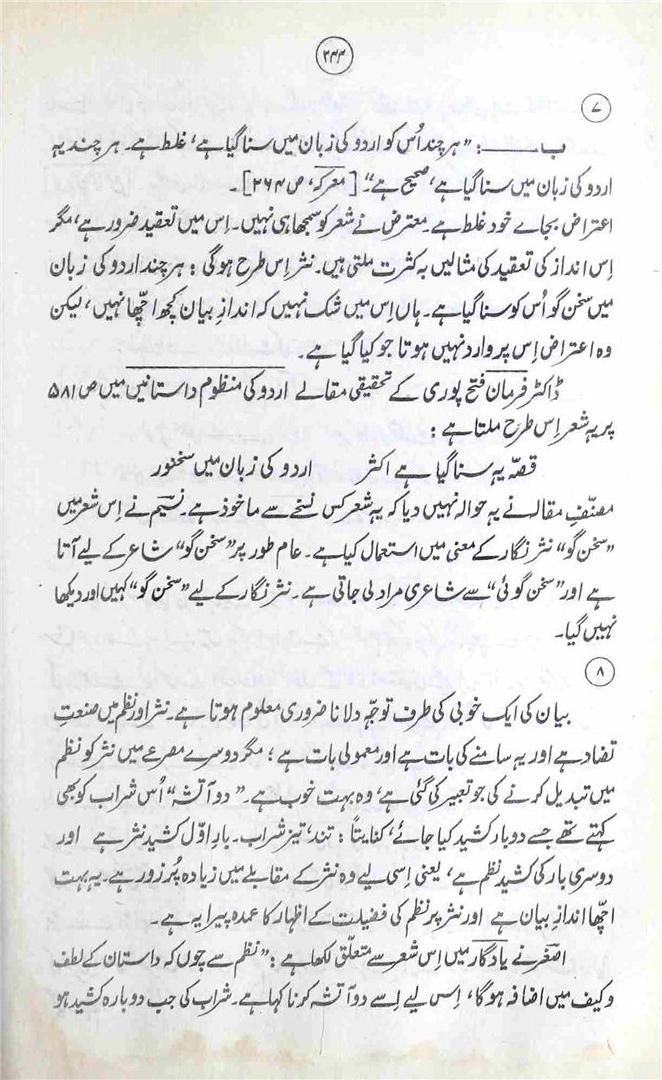 ۲۴۴
۷
ب ــــ : "ہر چند اُس کو اردو کی زبان میں سنا گیا ہے، غلط ہے۔ ہر چند یہ
اردو کی زبان میں سنا گیا ہے، صحیح ہے"۔ [معرکہ، ص ۲۶۴]۔
اعتراض بجاے خود غلط ہے۔ معترض نے شعر کو سمجھا ہی نہیں۔ اِس میں تعقید ضرور ہے، مگر
اِس انداز کی تعقید کی مثالیں بہ کثرت ملتی ہیں۔ نثر اِس طرح ہوگی : ہر چند اردو کی زبان
میں سخن گو اُس کو سنا گیا ہے۔ ہاں اِس میں شک نہیں کہ اندازِ بیان کچھ اچھّا نہیں، لیکن
وہ اعتراض اِس پر وارد نہیں ہوتا جو کیا گیا ہے۔
ڈاکٹر فرمان فتح پوری کے تحقیقی مقالے اردو کی منظوم داستانیں میں ص ۵۸۱
پر یہ شعر اِس طرح ملتا ہے :
قصّہ یہ سنا گیا ہے اکثر اردو کی زبان میں سخنور
مصنّفِ مقالہ نے یہ حوالہ نہیں دیا کہ یہ شعر کس نسخے سے ماخوذ ہے۔ نسیم نے اِس شعر میں
"سخن گو" نثر نگار کے معنی میں استعمال کیا ہے۔ عام طور پر "سخن گو" شاعر کے لیے آتا
ہے اور "سخن گوئی" سے شاعری مراد لی جاتی ہے۔ نثر نگار کے لیے "سخن گو" کہیں اور دیکھا
نہیں گیا۔
۸
بیان کی ایک خوبی کی طرف توجّہ دلانا ضروری معلوم ہوتا ہے۔ نثر اور نظم میں صنعتِ
تضاد ہے اور یہ سامنے کی بات ہے اور معمولی بات ہے ؛ مگر دوسرے مصرعے میں نثر کو نظم
میں تبدیل کرنے کی جو تعبیر کی گئی ہے، وہ بہت خوب ہے۔ "دو آتشہ" اُس شراب کو بھی
کہتے تھے جسے دو بار کشید کیا جائے، کنایتاً : تند، تیز شراب۔ بارِ اوّل کشید نثر ہے اور
دوسری بار کی کشید نظم ہے، یعنی اِسی لیے وہ نثر کے مقابلے میں زیادہ پُر زور ہے۔ یہ بہت
اچھّا اندازِ بیان ہے اور نثر پر نظم کی فضیلت کے اظہار کا عمدہ پیرایہ ہے۔
اصغر نے یادگار میں اِس شعر سے متعلّق لکھا ہے : "نظم سے چوں کہ داستان کے لطف
و کیف میں اضافہ ہوگا، اِس لیے اِسے دو آتشہ کرنا کہا ہے۔ شراب کی جب دوبارہ کشید ہو